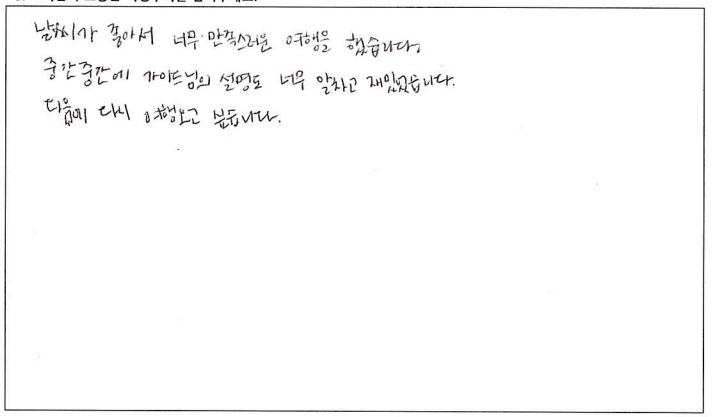 날씨가 좋아서 너무 만족스러운 여행을 했습니다.
중간중간에 가이드님의 설명도 너무 알차고 재밌었습니다.
다음에 다시 여행오고 싶습니다.